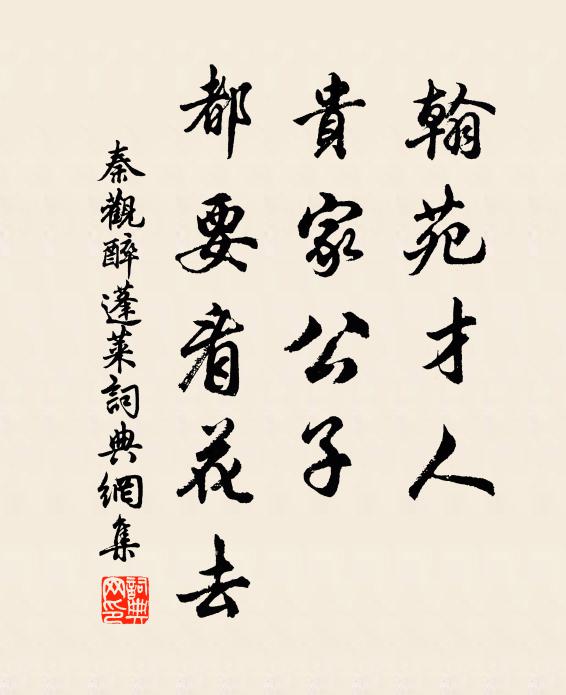 翰苑才人
貴家公子
都要看花去
秦觀醉蓬萊詞典網集
詞典网印